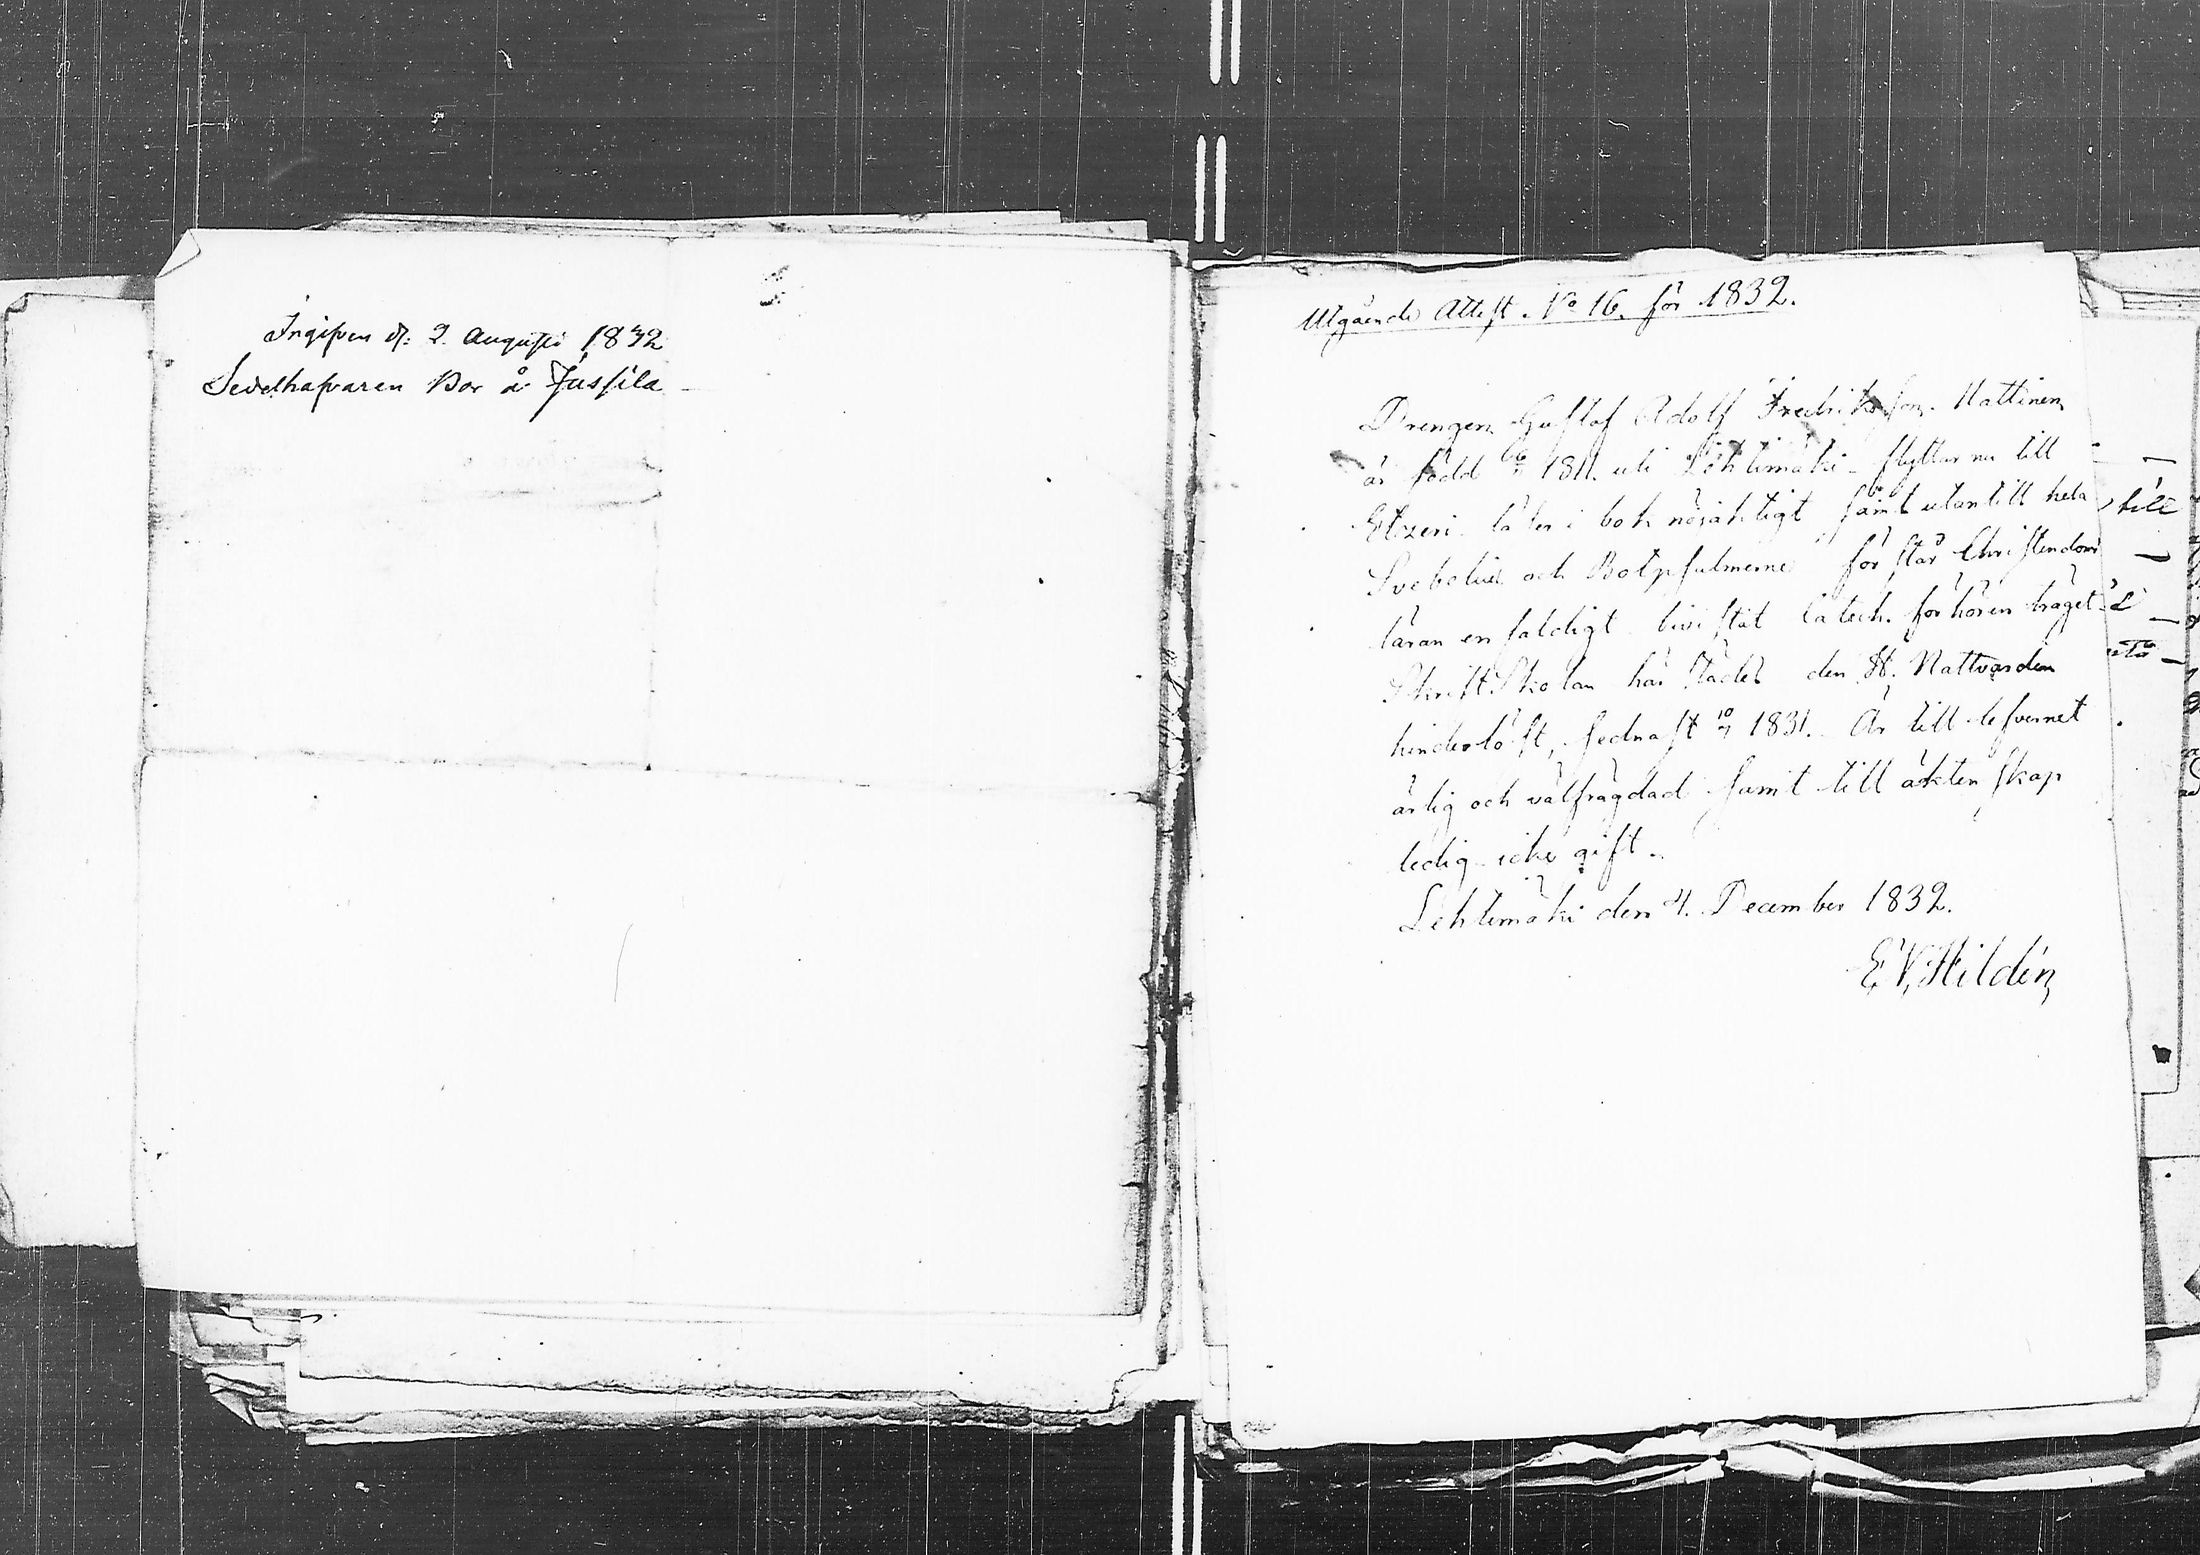 Ingifven d. 2 Augusti 1832
Sedelhafvaren Bor å Jussila
Utgående Attest. No 16. för 1832.
Drengen Gustaf Adolf Fredriksson Mattinen
är född 1811. uti Lehtimäki flyttar nu till
Etzeri. läser i bok nöjaktigt samt utantill hela
Svebelius och Botpsalmerne förstår Christendoms
läran enfaldigt bivistat Catech. förhören träget
Skriftskolan här städes den H. Nattvarden
hinderlöst, sednast 10/7 1831. Är till lefvernet
ärlig och välfrägdad samt till äktenskap
ledig icke gift.
Lehtimäki den 4. December 1832.
E. V. Hildén
till